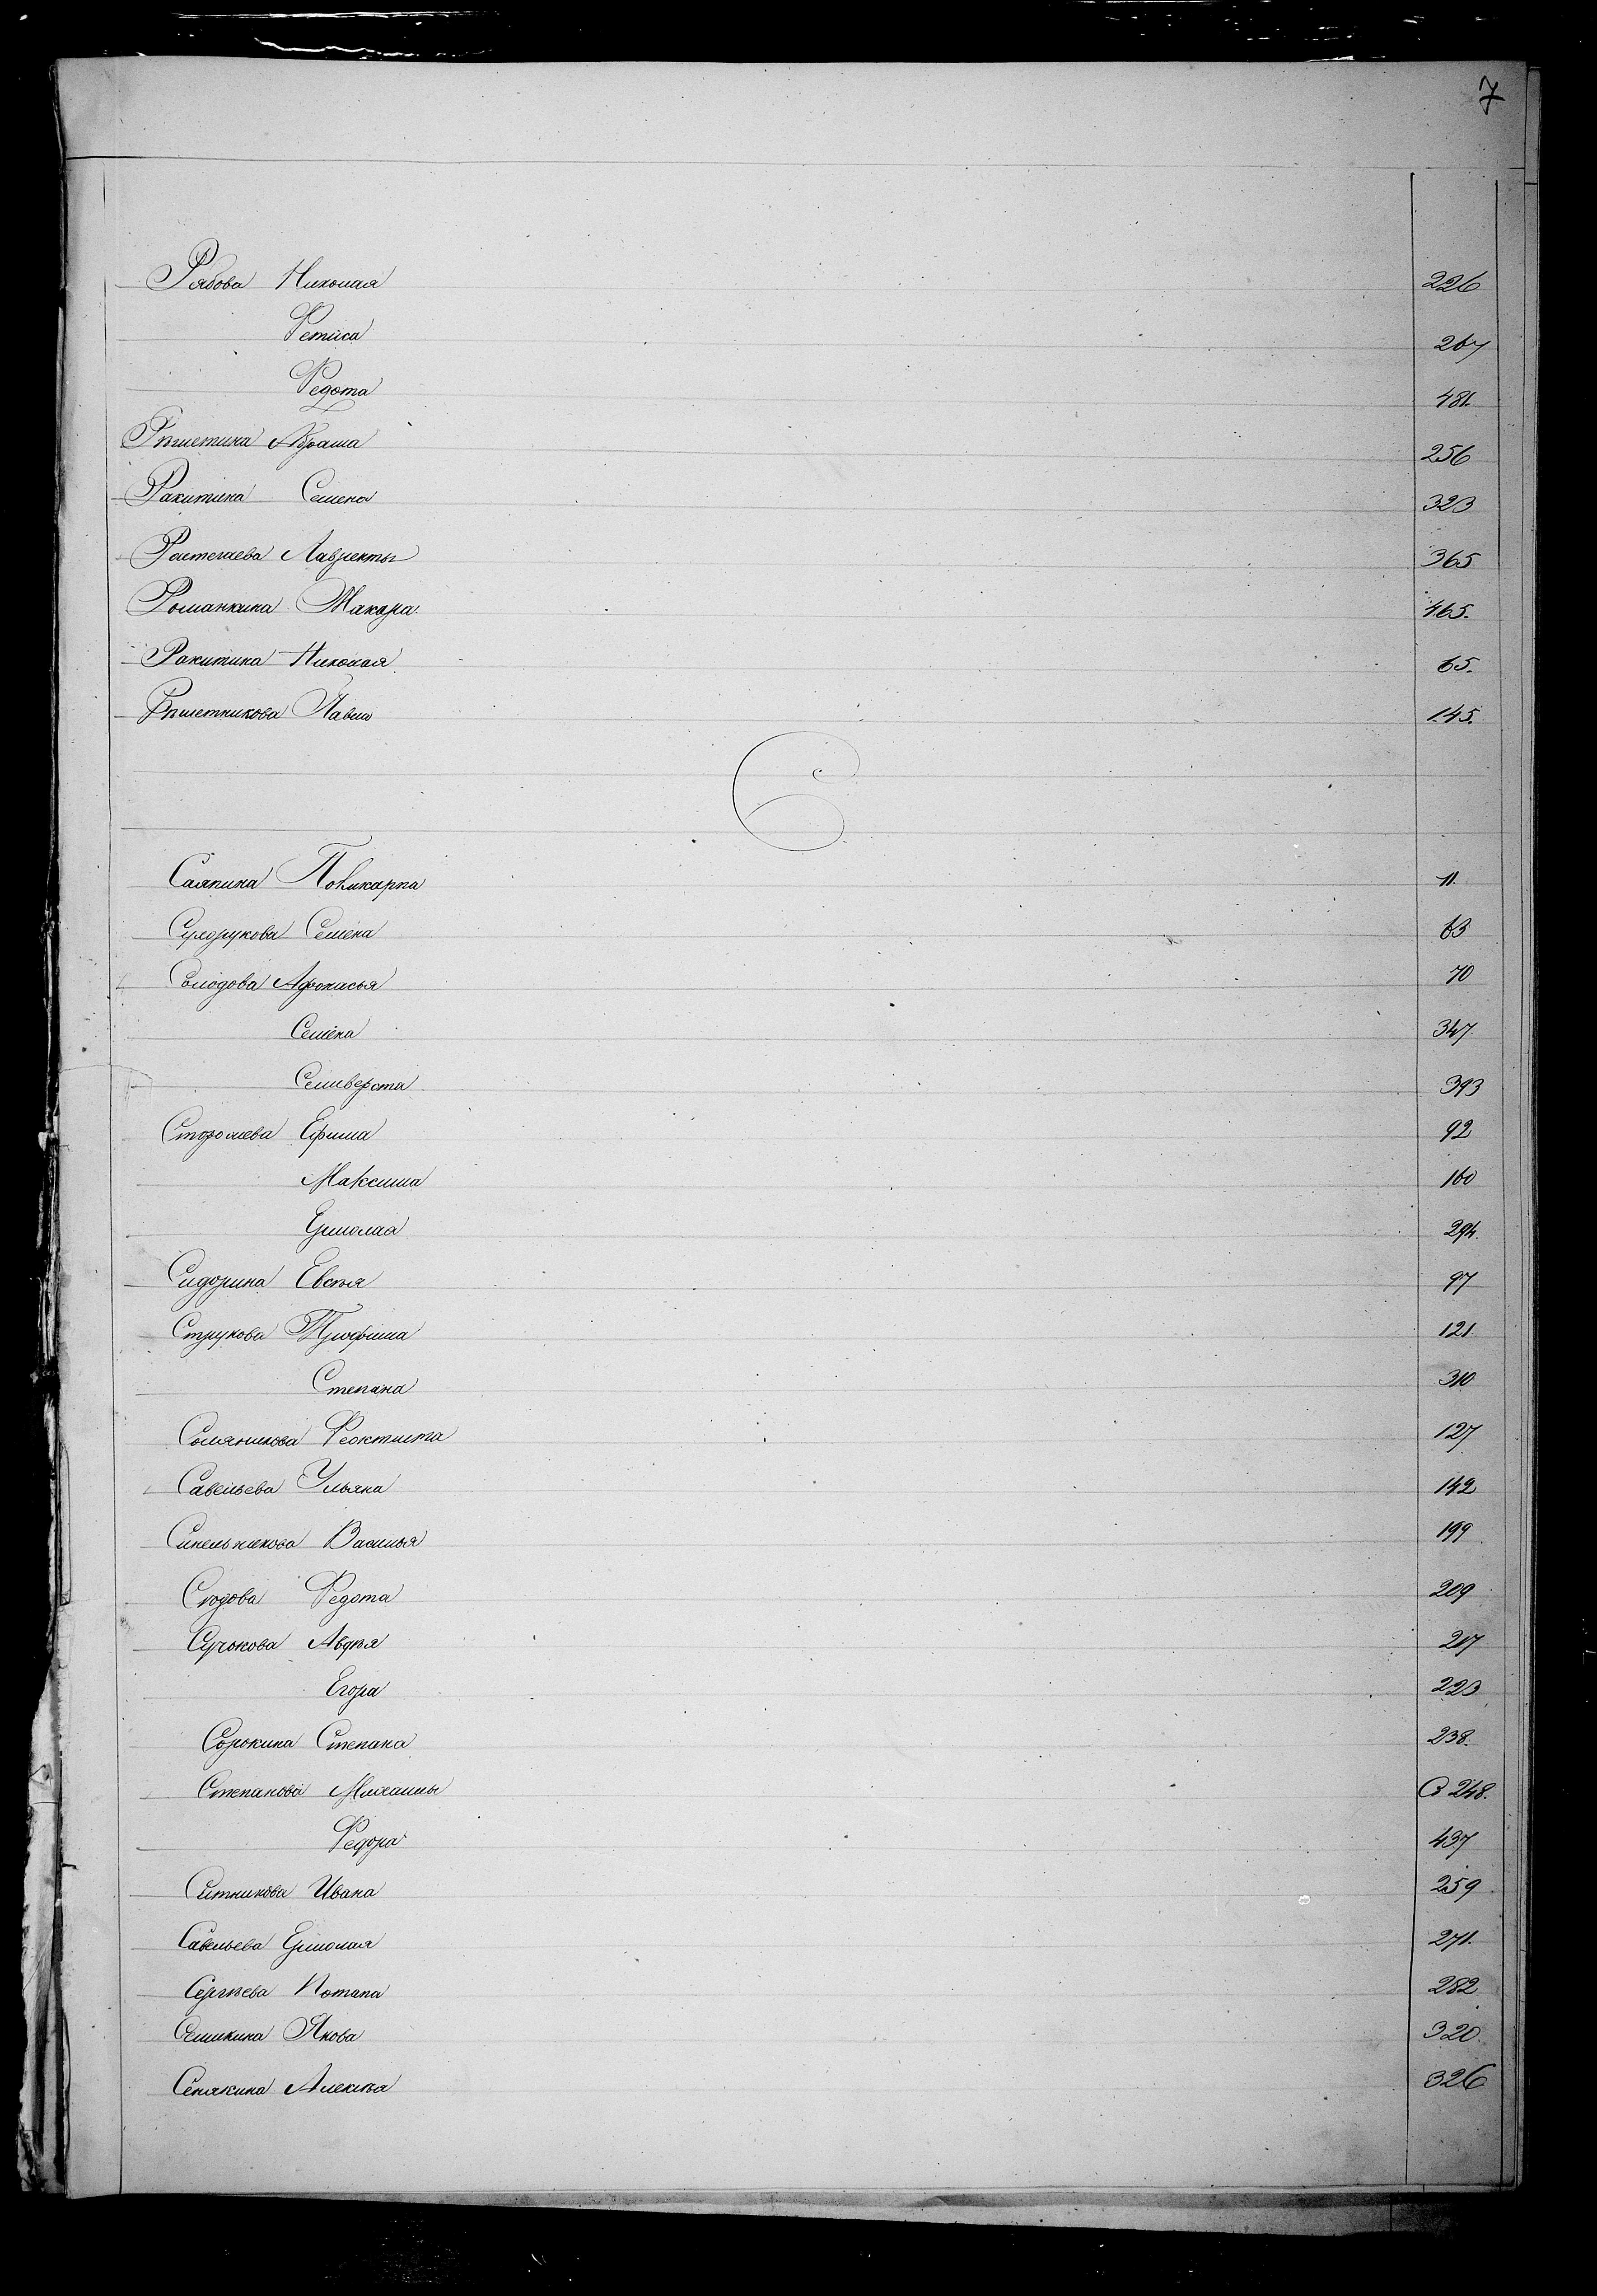 7
Рябова Николая 226
Фетиса 267
Федота 481.
Рѣшетина Абрама 256
Ракитина Семена 323
Растегаева Лаврентья 365
Романкина Макара. 465.
Ракитина Николая 65.
Рѣшетникова Павла 145.
С
Саяпина Поликарпа 11.
Сухорукова Семена 63
Солодова Афонасья 70
Семена 347
Селиверста 393
Сторожева Ефима 92
Максима 160
Ермолая 294.
Сидорина Евсѣя 97
Струкова Трофима 121.
Степана 310
Феоктиста 127
Савельева Ульяна 142
Синельникова Василья 199
Федота 209
Сучкова Авдѣя 217
Егора 223
Сорокина Степана 238.
Степанова Михаилы 248.
Федора 437
Ситникова Ивана 259
Савельева Ермолая 271.
Сергѣева Потапа 282
Семикина Якова 320.
Сенякина Алексѣя 326